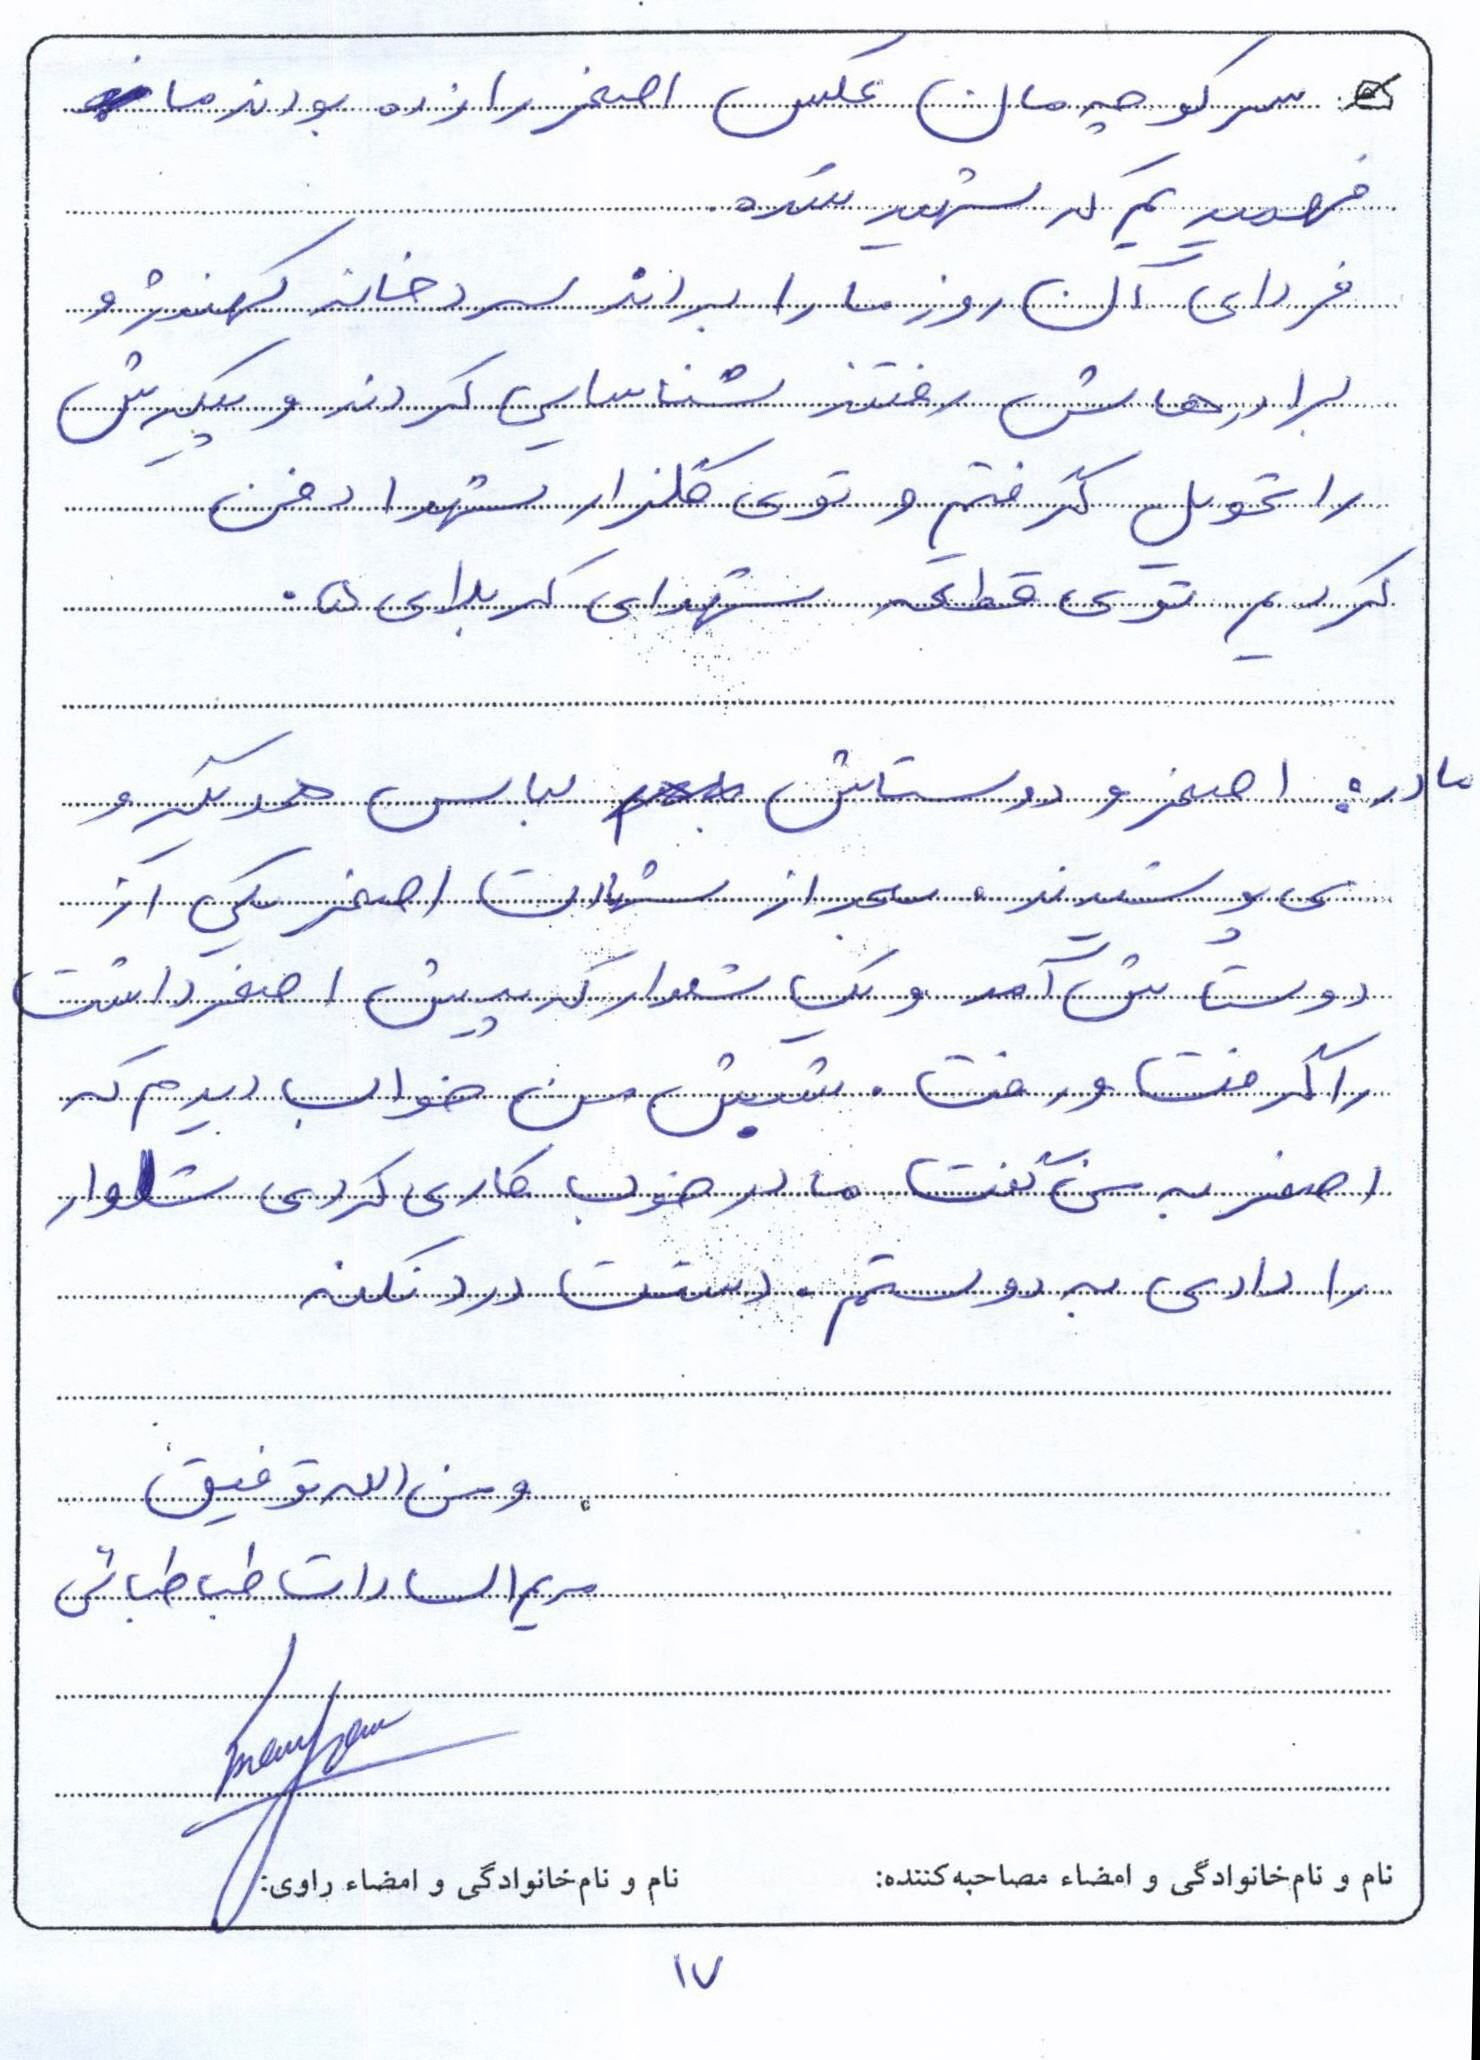 سر کوچه مان عکس اصغر را زده بودند ما
فهمیدیم که شهید شده.
فردای آن روز ما را بردند سردخانه کهندژ و
برادرهایش رفتند شناسایی کردند و پیکرش
را تحویل گرفتیم و توی گلزار شهدا دفن
کردیم توی قطعه شهدای کربلای ۵.
مادر: اصغر و دوستاش لباس همدیگر و
می پوشیدند. بعد از شهادت اصغر یکی از
دوستاش آمد و یک شلوار که پیش اصغر داشت
را گرفت و رفت. شبش من خواب دیدم که
اصغر به من گفت مادر خوب کاری کردی شلوار
را دادی به دوستم. دستت درد نکنه
و من الله توفیق
مریم السادات طباطبائی
نام و نام‌خانوادگی و امضاء مصاحبه‌کننده: نام و نام‌خانوادگی و امضاء راوی:
۱۷